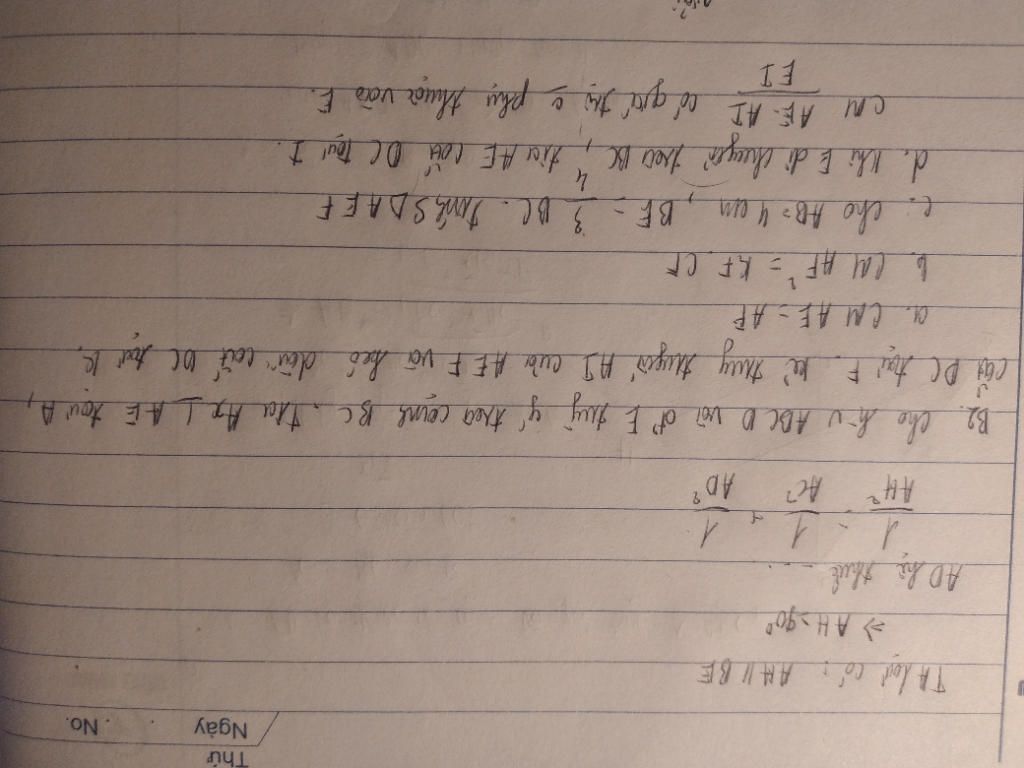 Thứ
Ngày . . No.
TA lại có : AH // BE
=> AH = 90°
AD hệ thức - ...
1/AH² = 1/AC² + 1/AD²
B2. Cho h.v ABCD và đ' E tuỳ ý trên cạnh BC. tia Ax ⊥ AE tại A,
cắt DC tại F. kẻ trung tuyến AI của AEF và kéo dài cắt DC tại K.
a. CM AE = AF
b. CM AF² = KF. CF
c. Cho AB = 4 cm, BE = 3/4 BC. tính S Δ AEF
d. khi E di chuyển trên BC, tia AE cắt DC tại I.
CM AE. AI / EI có giá trị phụ thuộc vào E.